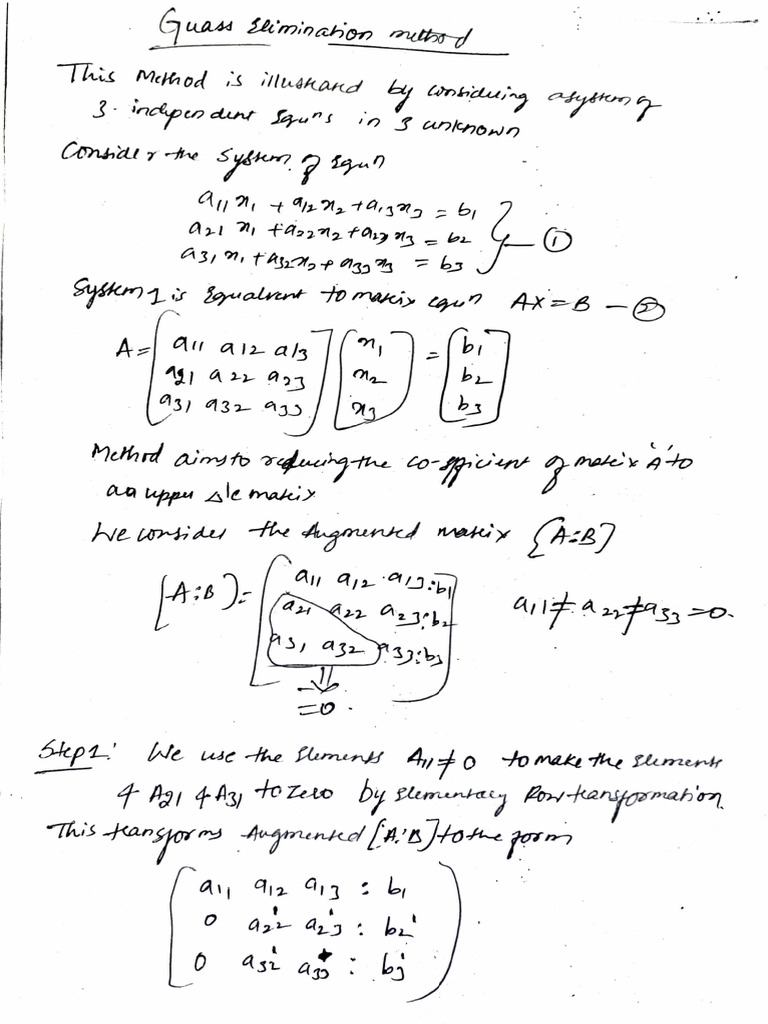 Guass Elimination method
This Method is illustrated by considering a system of
3 - independent Equns in 3 unknown
Consider the system of Equn
a11 x1 + a12 x2 + a13 x3 = b1
a21 x1 + a22 x2 + a23 x3 = b2 } — ①
a31 x1 + a32 x2 + a33 x3 = b3
System 1 is Equalvent to matrix equn AX = B — ②
A = [ a11 a12 a13 ] [ x1 ] = [ b1 ]
a21 a22 a23 x2 b2
a31 a32 a33 x3 b3
Method aims to reducing the co-efficient of matrix 'A' to
an upper Δle matrix
We consider the Augmented matrix [A:B]
[A:B] = [ a11 a12 a13 : b1
a21 a22 a23 : b2 a11 ≠ a22 ≠ a33 = 0.
a31 a32 a33 : b3 ]
⇓
= 0.
Step 1: We use the Elements A11 ≠ 0 to make the Elements
& A21 & A31 to zero by Elementary Row transformation.
This transforms Augmented [A:B] to the form
[ a11 a12 a13 : b1
0 a22' a23' : b2'
0 a32' a33' : b3' ]